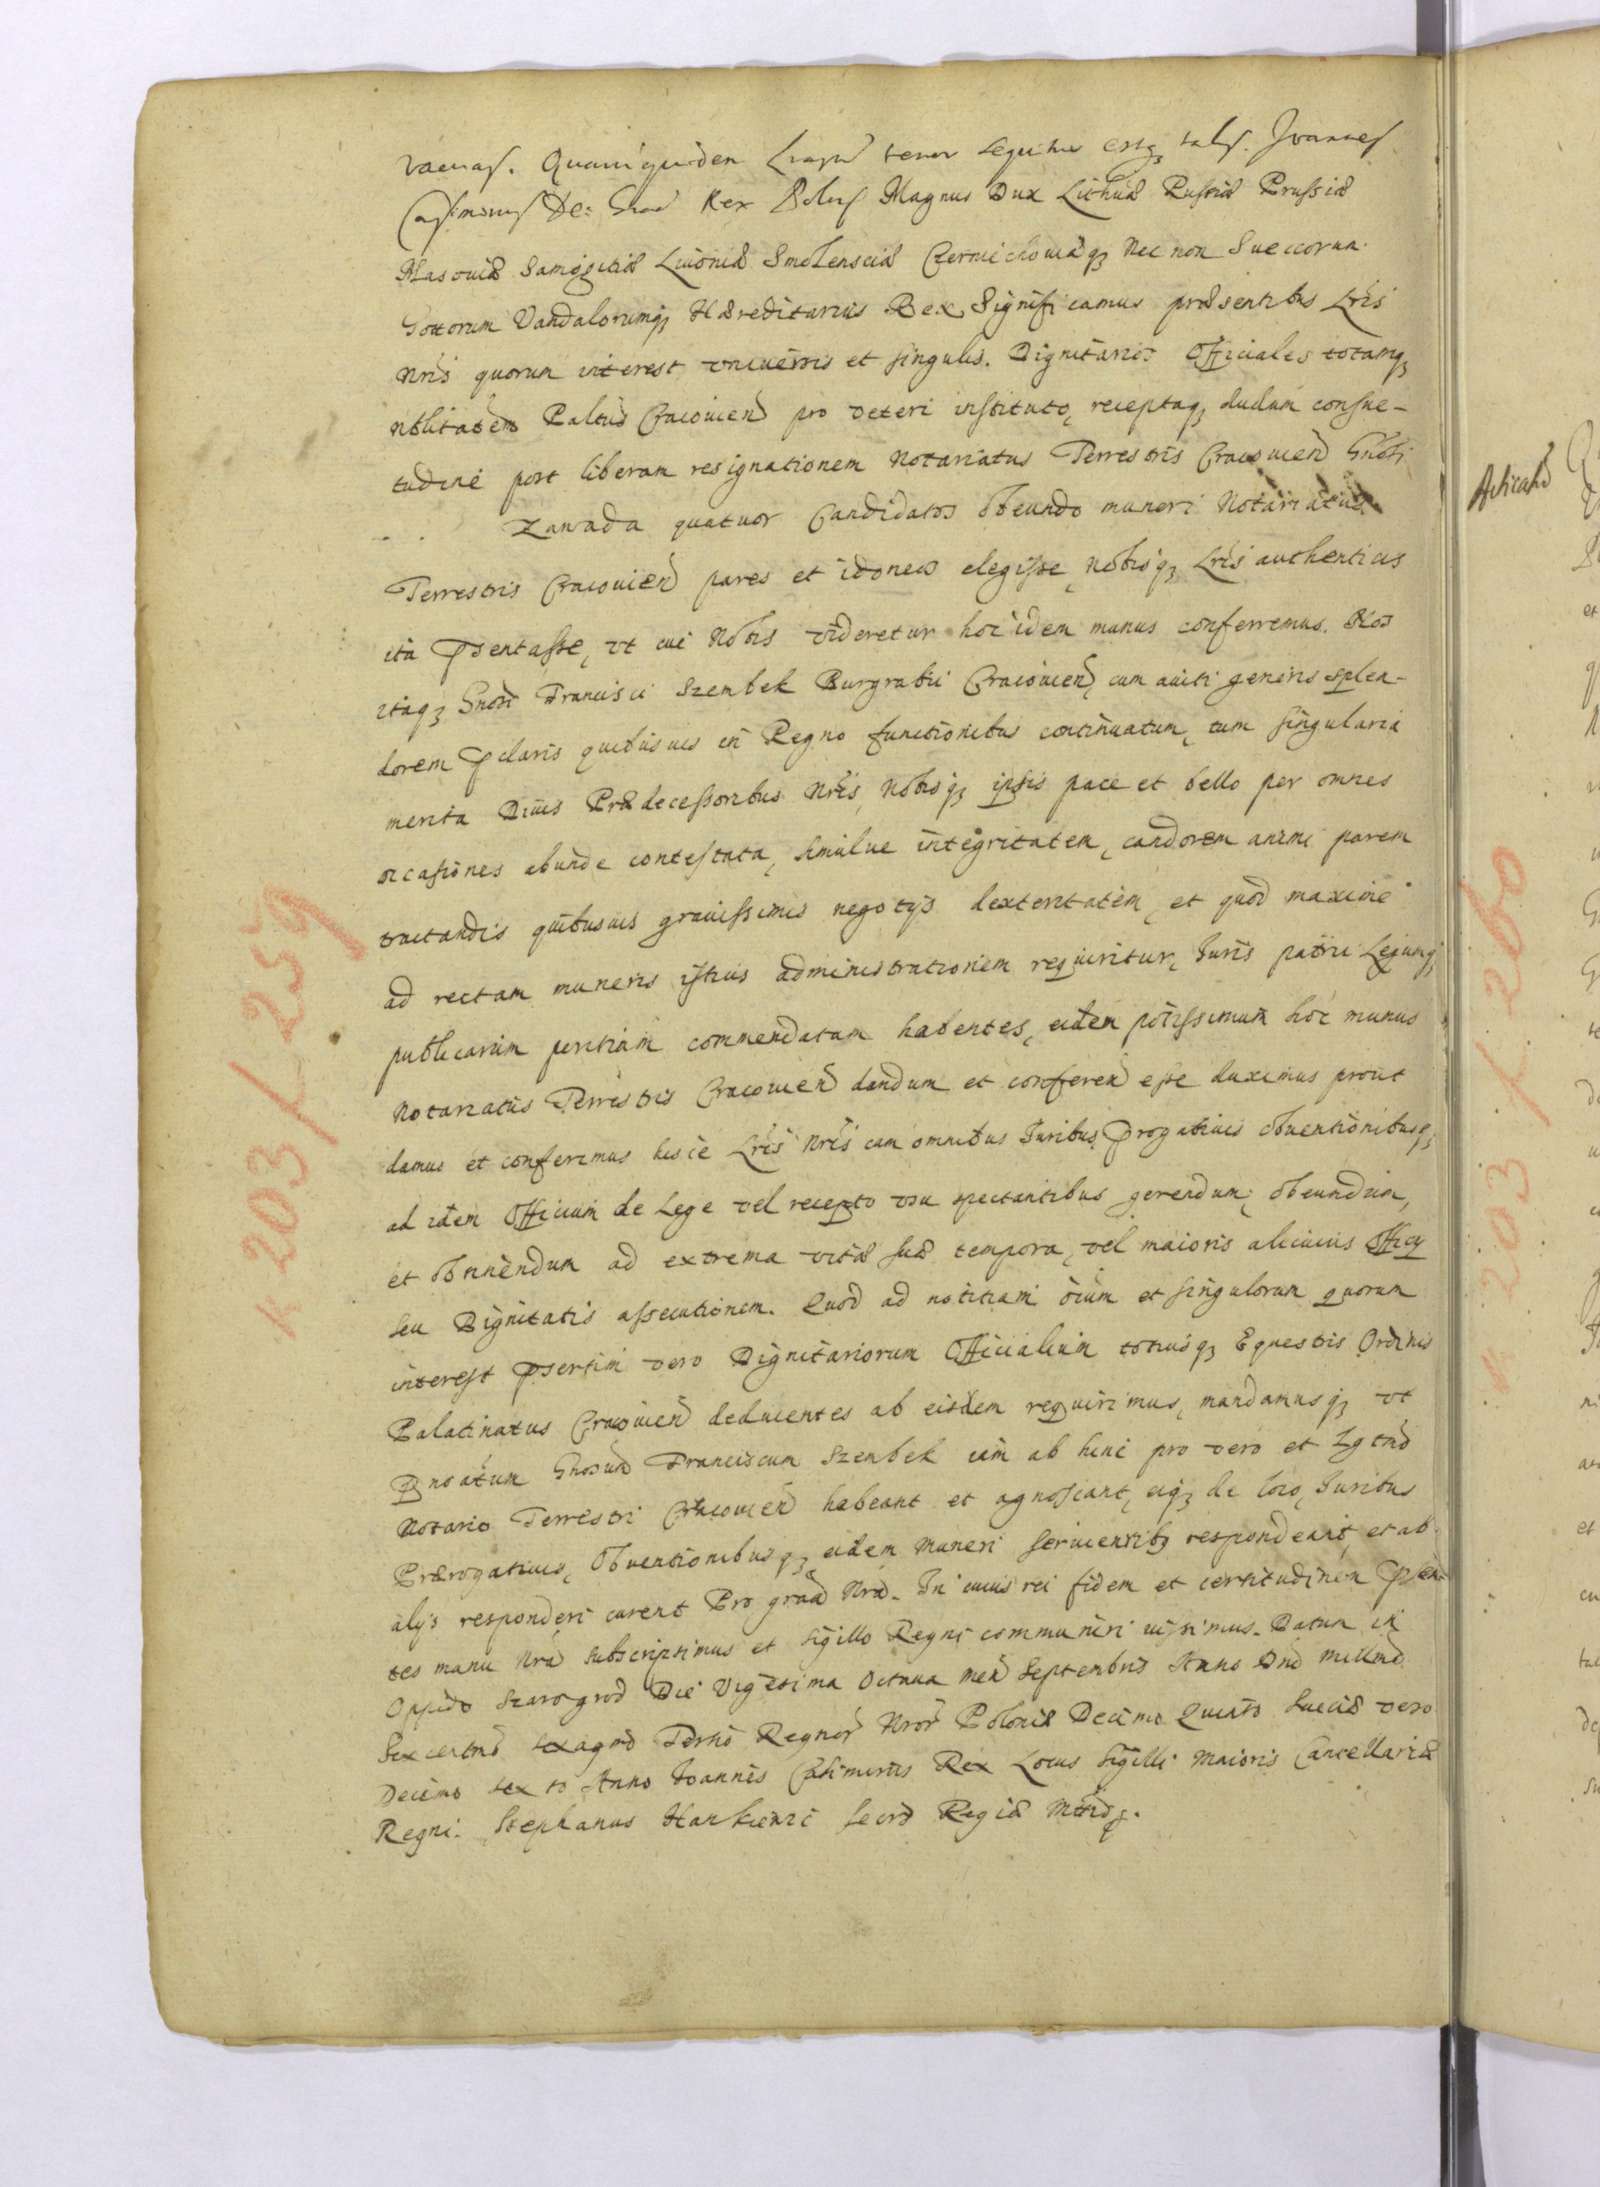 Quamquidem tenor sequitur estq3 talis. Joannes
Casimirus Dei Gra Rex Polus Magnus Dux Lithuæ Russiæ Prussiæ
Masouiæ Samogitiæ Liuoniæ Smolensciæ Czernichouiæq3 Nec non Suecorum
Gottorum Vandalorumq3 Hæreditarius Rex Significamus præsentibus Lris
Nris quorum interest vniuersis et singulis. Dignitarios Officiales totamq3
nblitatem Paltus Cracouien pro veteri instituto, receptaq3 dudum consue-
tudine post liberam resignationem Notariatus Terrestris Cracouien Gnosi
Zawada quatuor Candidatos obeundo muneri Notariatus
Terrestris Cracouien pares et idoneos elegisse, Nobisq3 Lris authenticis
ita psentasse, vt cui Nobis videretur hoc idem munus conferremus. Nos
itaq3 Gnosi Francisci Szembek Burgrabii Cracouien, cum auiti generis splen-
dorem pclaris quibusuis in Regno functionibus continuatum, tum singularia
merita Diuis Prædecessoribus Nris, Nobisq3 ipsis pace et bello per omnes
occasiones abunde contestata, simulue integritatem, candorem animi parem
tractandis quibusuis grauissimis negotijs dexteritatem, et quod maxime
ad rectam muneris istius administrationem requiritur, Iuris patrii Legumq3
publicarum peritiam commendatam habentes, eidem potissimum hoc munus
Notariatus Terrestris Cracouien dandum et conferen esse duximus prout
damus et conferimus hisce Lris Nris cum omnibus Iuribus, Progatiuis obuentionibusq3
ad idem Officium de Lege vel recepto vsu spectantibus gerendum, obeundum,
et obtinendum ad extrema vitæ suæ tempora, vel maioris alicuius Officij
seu Dignitatis assecutionem. Quod ad notitiam oium et singulorum quorum
interest psertim vero Dignitariorum Officialium totiusq3 Equestris Ordinis
Palatinatus Cracouien deducentes ab eisdem requirimus, mandamusq3 vt
pnoatum Gnosum Franciscum Szembek iam ab hinc pro vero et Lgtmo
Notario Terrestri Cracouien habeant et agnoscant, eiq3 de loco, Iuribus
Prærogatiuis, obuentionibusq3 eidem muneri seruientib3 respondeant, et ab
alijs responderi curent Pro graa Nra. In cuius rei fidem et certitudinem psen-
tes manu Nra subscripsimus et sigillo Regni communiri iussimus. Datum in
Oppido Szarogrod Die Vigesima Octaua men Septembris Anno Dni Millmo
Sexcentmo sexagmo Tertio Regnor Nror Poloniæ Decimo Quinto Sueciæ vero
Decimo sexto Anno Joannes Casimirus Rex Locus Sigilli Maioris Cancellariæ
Regni. Stephanus Hankiewic Secrs Regiæ Mttis.
k 203 / 259
k 203 / 260